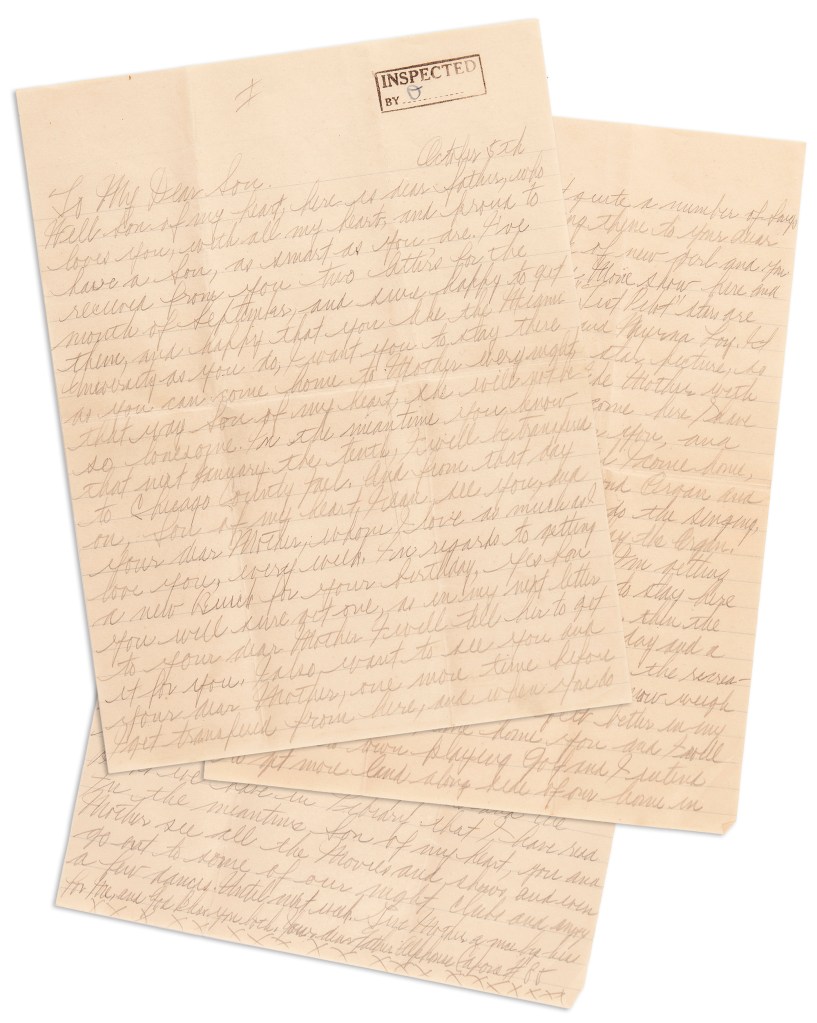 INSPECTED
BY
October 5th
To My Dear Son.
Well son of my heart, here is dear father, who
loves you, with all my heart, and proud to
have a Son, as smart as you are. I've
received from you two letters for the
month of September, and sure happy to get
them, and happy that you like the Miami
University as you do, I want you to stay there
as you can come home to Mother every night
that way Son of my heart, she will not be
so lonesome. In the meantime you know
that next January the tenth, I will be transfered
to Chicago County Jail. And from that day
on, Son of my heart, I can see you, and
your dear Mother, whom I love as much as I
love you, every week. In regards to getting
a new Buick for your birthday, yes Son
you will sure get one, as in my next letter
to your dear Mother I will tell her to get
it for you. I also, want to see you and
your dear Mother, one more time before
I get transfered from here, and when you do
quite a number of songs
them to your dear
of new girl and you
Movie show here and
Pilot" stars are
Myrna Loy. I
star, picture, so
Mother with
come here I have
you, and
I come home,
Organ and
the singing,
the Organ.
I'm getting
to stay here
then the
day and a
the recrea-
now weigh
better in my
home, you and I will
own. playing Golf and I intend
get more land along side of our home in
in Library that I have read
In the meantime, Son of my heart, you and
Mother see all the Movies and shows, and even
go out to some of our night clubs and enjoy
a few dances. Until next week. Give Mother a nice big kiss
for me, and God bless you both. Your dear father Alphonse Capone # 85